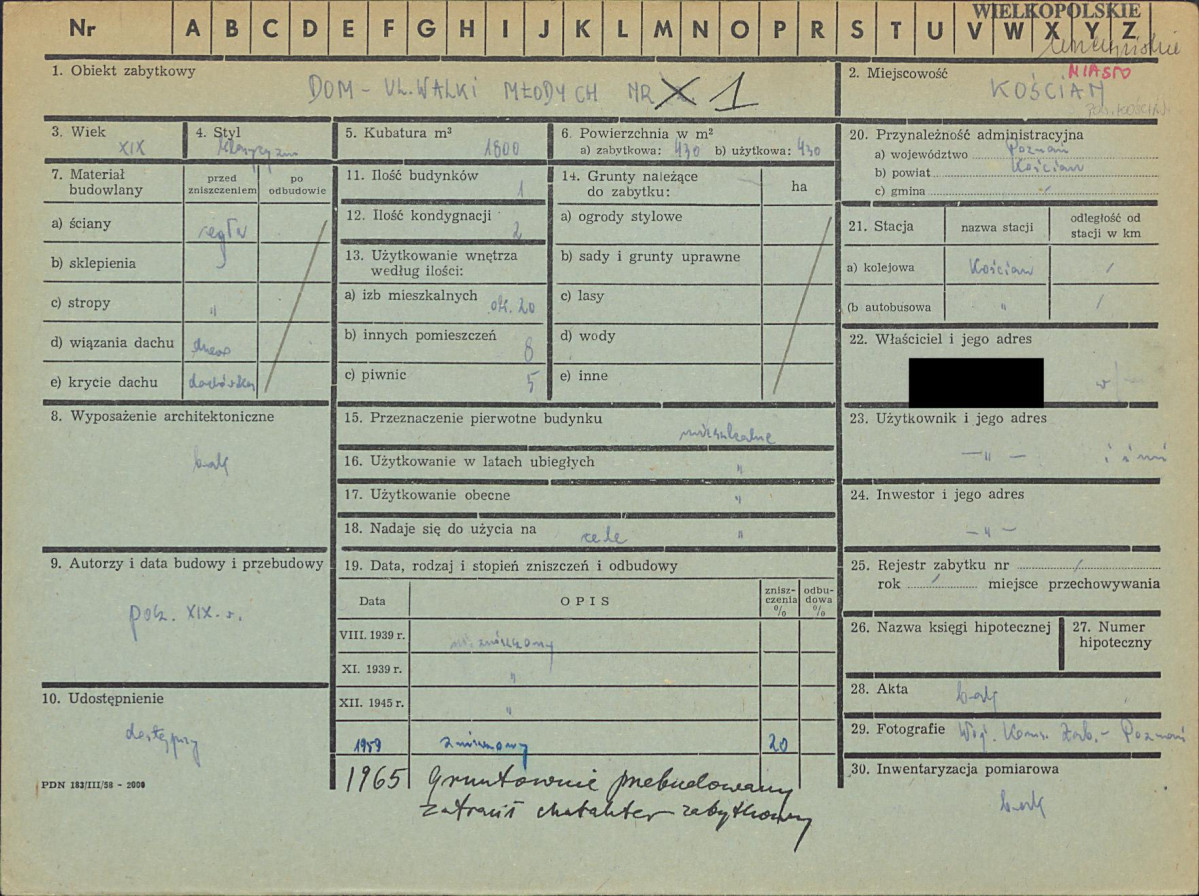 WIELKOPOLSKIE
Nr A B C D E F G H I J K L M N O P R S T U V W X Y Z
1. Obiekt zabytkowy
DOM – UL. WALKI MŁODYCH NR 1
2. Miejscowość
MIASTO
KOŚCIAN
POW. KOŚCIAN
3. Wiek
XIX
4. Styl
klasycyzm
5. Kubatura m³
1800
6. Powierzchnia w m²
a) zabytkowa: 430 b) użytkowa: 430
7. Materiał budowlany
przed zniszczeniem
po odbudowie
a) ściany cegła
b) sklepienia
c) stropy "
d) wiązania dachu drewo
e) krycie dachu dachówka
8. Wyposażenie architektoniczne
brak
9. Autorzy i data budowy i przebudowy
poł. XIX w.
10. Udostępnienie
dostępny
PDN 183/III/58 - 2000
11. Ilość budynków
1
12. Ilość kondygnacji
2
13. Użytkowanie wnętrza
według ilości:
a) izb mieszkalnych ok. 20
b) innych pomieszczeń 8
c) piwnic 5
14. Grunty należące
do zabytku:
ha
a) ogrody stylowe
b) sady i grunty uprawne
c) lasy
d) wody
e) inne
15. Przeznaczenie pierwotne budynku
mieszkalne
16. Użytkowanie w latach ubiegłych "
17. Użytkowanie obecne "
18. Nadaje się do użycia na cele "
19. Data, rodzaj i stopień zniszczeń i odbudowy
Data
OPIS
zniszczenia %
odbudowa %
VIII. 1939 r. niezniszczony
XI. 1939 r. "
XII. 1945 r. "
1959 zniszczony 20
1965 Gruntownie przebudowany
zatracił charakter zabytkowy
20. Przynależność administracyjna
a) województwo Poznań
b) powiat Kościan
c) gmina /
21. Stacja
nazwa stacji
odległość od stacji w km
a) kolejowa Kościan /
(b autobusowa " /
22. Właściciel i jego adres
23. Użytkownik i jego adres
— " — i inni
24. Inwestor i jego adres
— " —
25. Rejestr zabytku nr /
rok / miejsce przechowywania
26. Nazwa księgi hipotecznej
27. Numer
hipoteczny
28. Akta brak
29. Fotografie Woj. Kons. Zab. – Poznań
30. Inwentaryzacja pomiarowa
brak